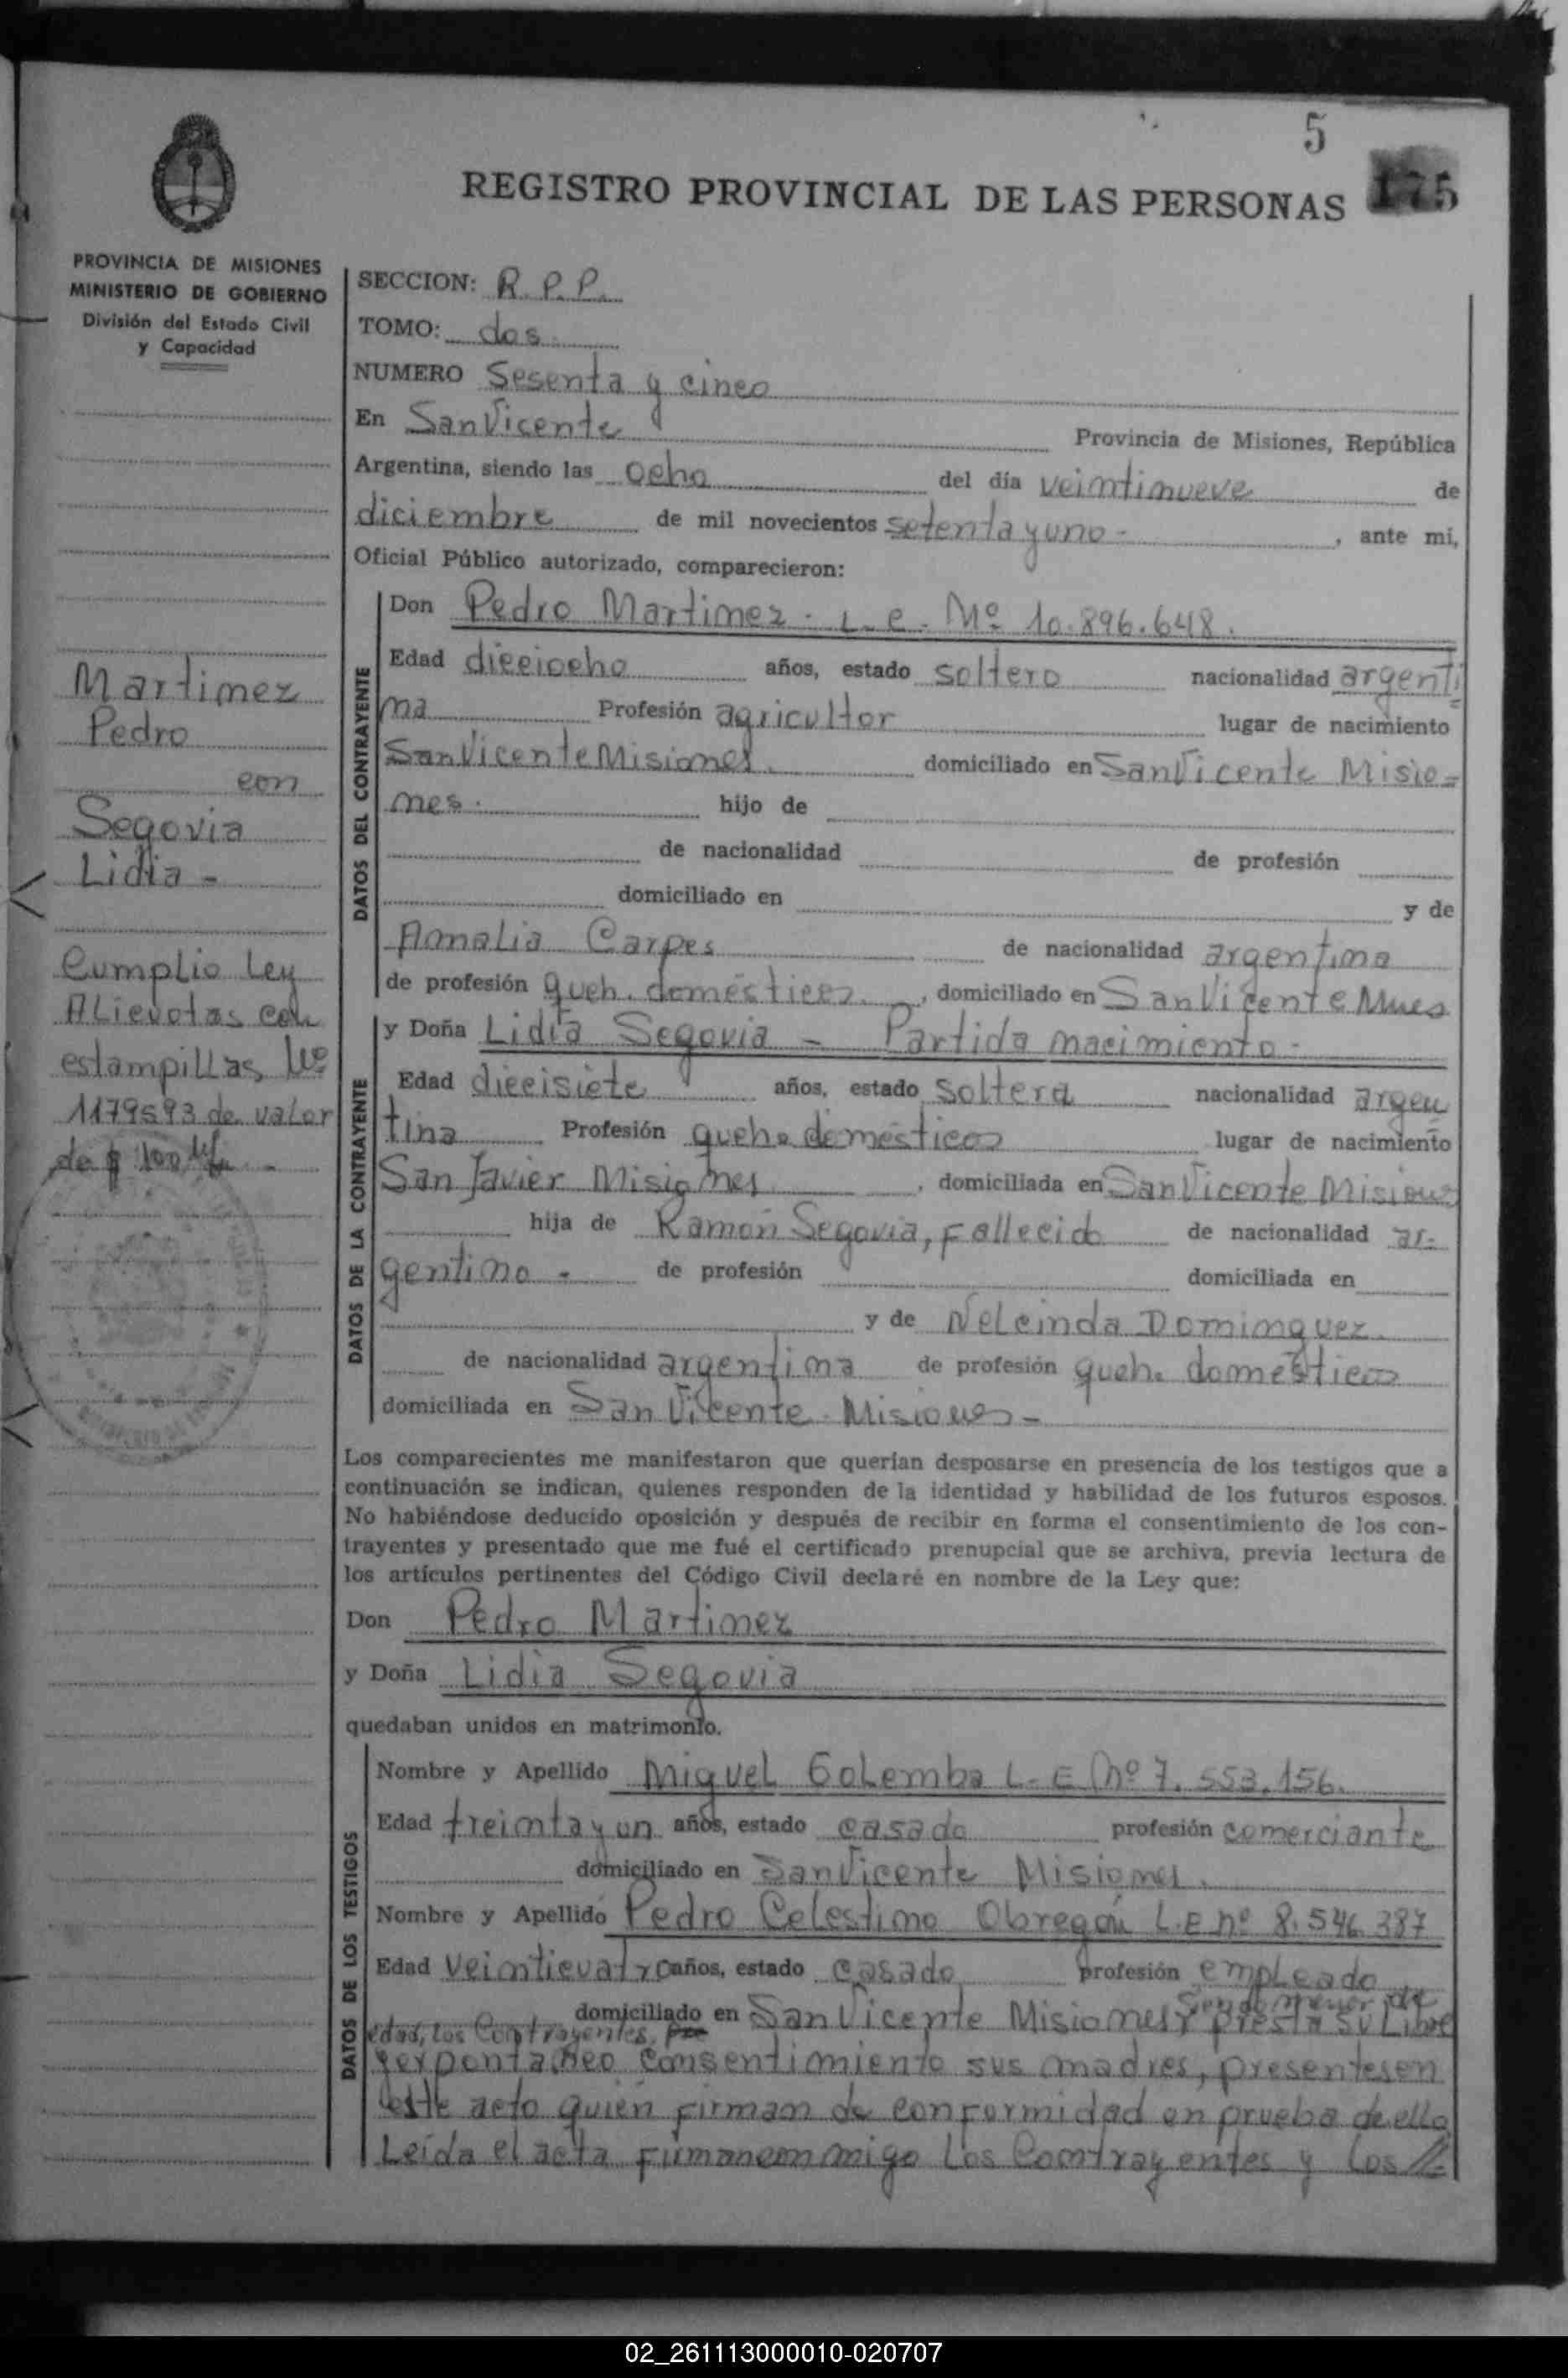 5
REGISTRO PROVINCIAL DE LAS PERSONAS 175
PROVINCIA DE MISIONES
MINISTERIO DE GOBIERNO
División del Estado Civil
y Capacidad
SECCION: R. P. P.
TOMO: dos
NUMERO Sesenta y cinco
En San Vicente Provincia de Misiones, República
Argentina, siendo las ocho del día veintinueve de
diciembre de mil novecientos setenta y uno - , ante mi,
Oficial Público autorizado, comparecieron:
Martinez
Pedro
con
Segovia
Lidia -
Cumplio Ley
ALicuotas con
estampillas Nº
1179593 de valor
de $ 100
DATOS DEL CONTRAYENTE
Don Pedro Martinez - L. e. Nº 10.896.648.
Edad dieciocho años, estado soltero nacionalidad argenti
na Profesión agricultor lugar de nacimiento
San Vicente Misiones. domiciliado en San Vicente Misio-
nes. hijo de
de nacionalidad de profesión
domiciliado en y de
Amalia Carpes de nacionalidad argentina
de profesión queh. domésticos. , domiciliado en San Vicente Mnes
DATOS DE LA CONTRAYENTE
y Doña Lidia Segovia - Partida nacimiento -
Edad diecisiete años, estado soltera nacionalidad argen
tina Profesión queh. domésticos lugar de nacimiento
San Javier Misiones , domiciliada en San Vicente Misiones
hija de Ramón Segovia, Fallecido de nacionalidad ar-
gentino - de profesión domiciliada en
y de Nelcinda Dominguez.
de nacionalidad argentina de profesión queh. domésticos
domiciliada en San Vicente Misiones -
Los comparecientes me manifestaron que querían desposarse en presencia de los testigos que a
continuación se indican, quienes responden de la identidad y habilidad de los futuros esposos.
No habiéndose deducido oposición y después de recibir en forma el consentimiento de los con-
trayentes y presentado que me fué el certificado prenupcial que se archiva, previa lectura de
los artículos pertinentes del Código Civil declaré en nombre de la Ley que:
Don Pedro Martinez
y Doña Lidia Segovia
quedaban unidos en matrimonio.
DATOS DE LOS TESTIGOS
Nombre y Apellido Miguel Golemba L. E Nº 7.553.156.
Edad treinta y un años, estado casado profesión comerciante
domiciliado en San Vicente Misiones.
Nombre y Apellido Pedro Celestino Obregón L.E nº 8.546.387
Edad veinticuatro años, estado casado profesión empleado
domiciliado en San Vicente Misiones y Siendo menor de
edad, los Contrayentes, presta su Libre
y expontaneo consentimiento sus madres, presentes en
este acto quien firman de conformidad en prueba de ello
Leída el acta firman con migo los Contrayentes y los
02_261113000010-020707